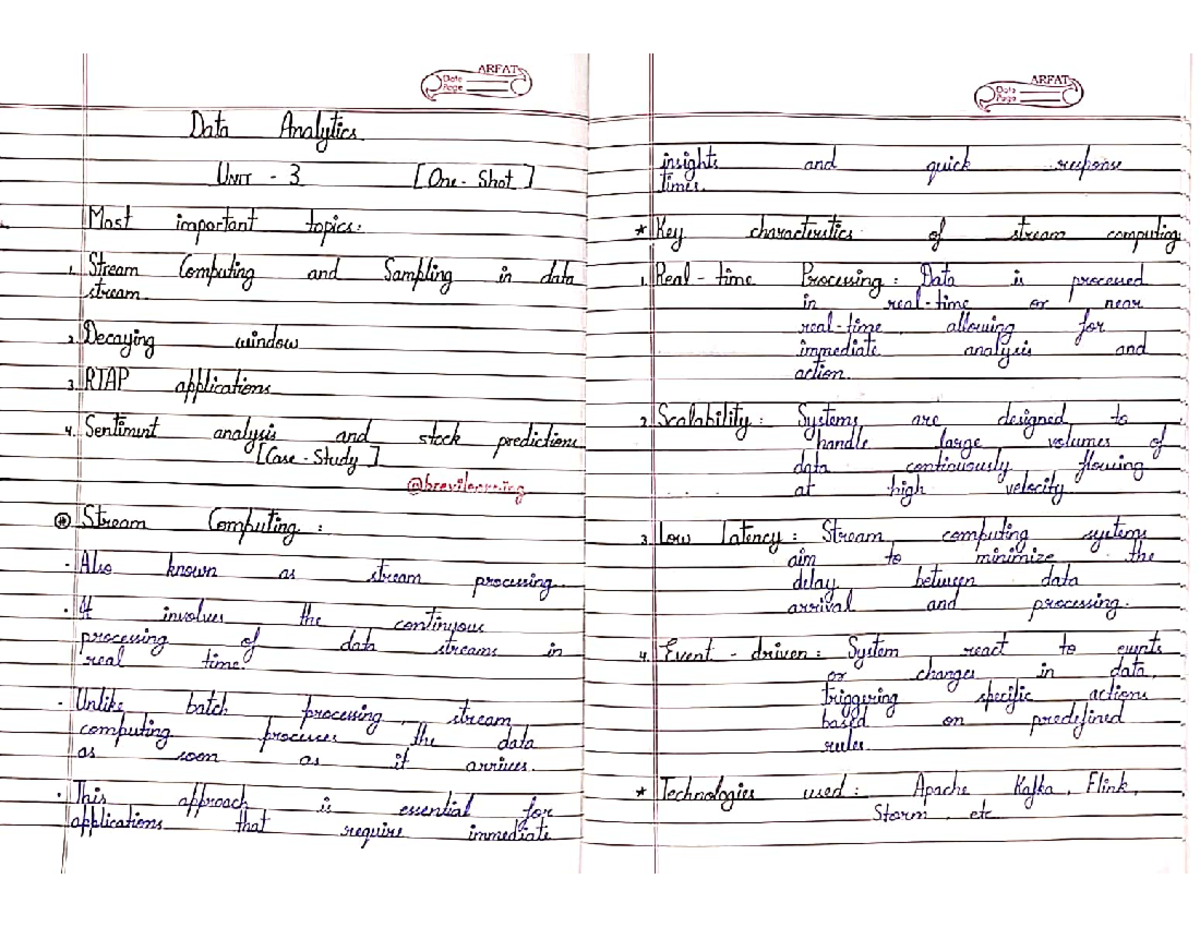 ARFAT
Date
Page
Data Analytics
UNIT - 3 [One-Shot]
Most important topics:
1. Stream Computing and Sampling in data
stream.
2. Decaying window
3. RTAP applications
4. Sentiment analysis and stock predictions
[Case-Study]
@brevilearning
* Stream Computing :
· Also known as stream processing.
· It involves the continuous
processing of data streams in
real time.
· Unlike batch processing, stream
computing processes the data
as soon as it arrives.
· This approach is essential for
applications that require immediate
ARFAT
Date
Page
insights and quick response
times.
* Key characteristics of stream computing
1. Real-time Processing : Data is processed
in real-time or near
real-time, allowing for
immediate analysis and
action.
2. Scalability : Systems are designed to
handle large volumes of
data continuously flowing
at high velocity.
3. Low Latency : Stream computing systems
aim to minimize the
delay between data
arrival and processing.
4. Event-driven : System react to events
or changes in data,
triggering specific actions
based on predefined
rules.
* Technologies used : Apache Kafka, Flink,
Storm, etc